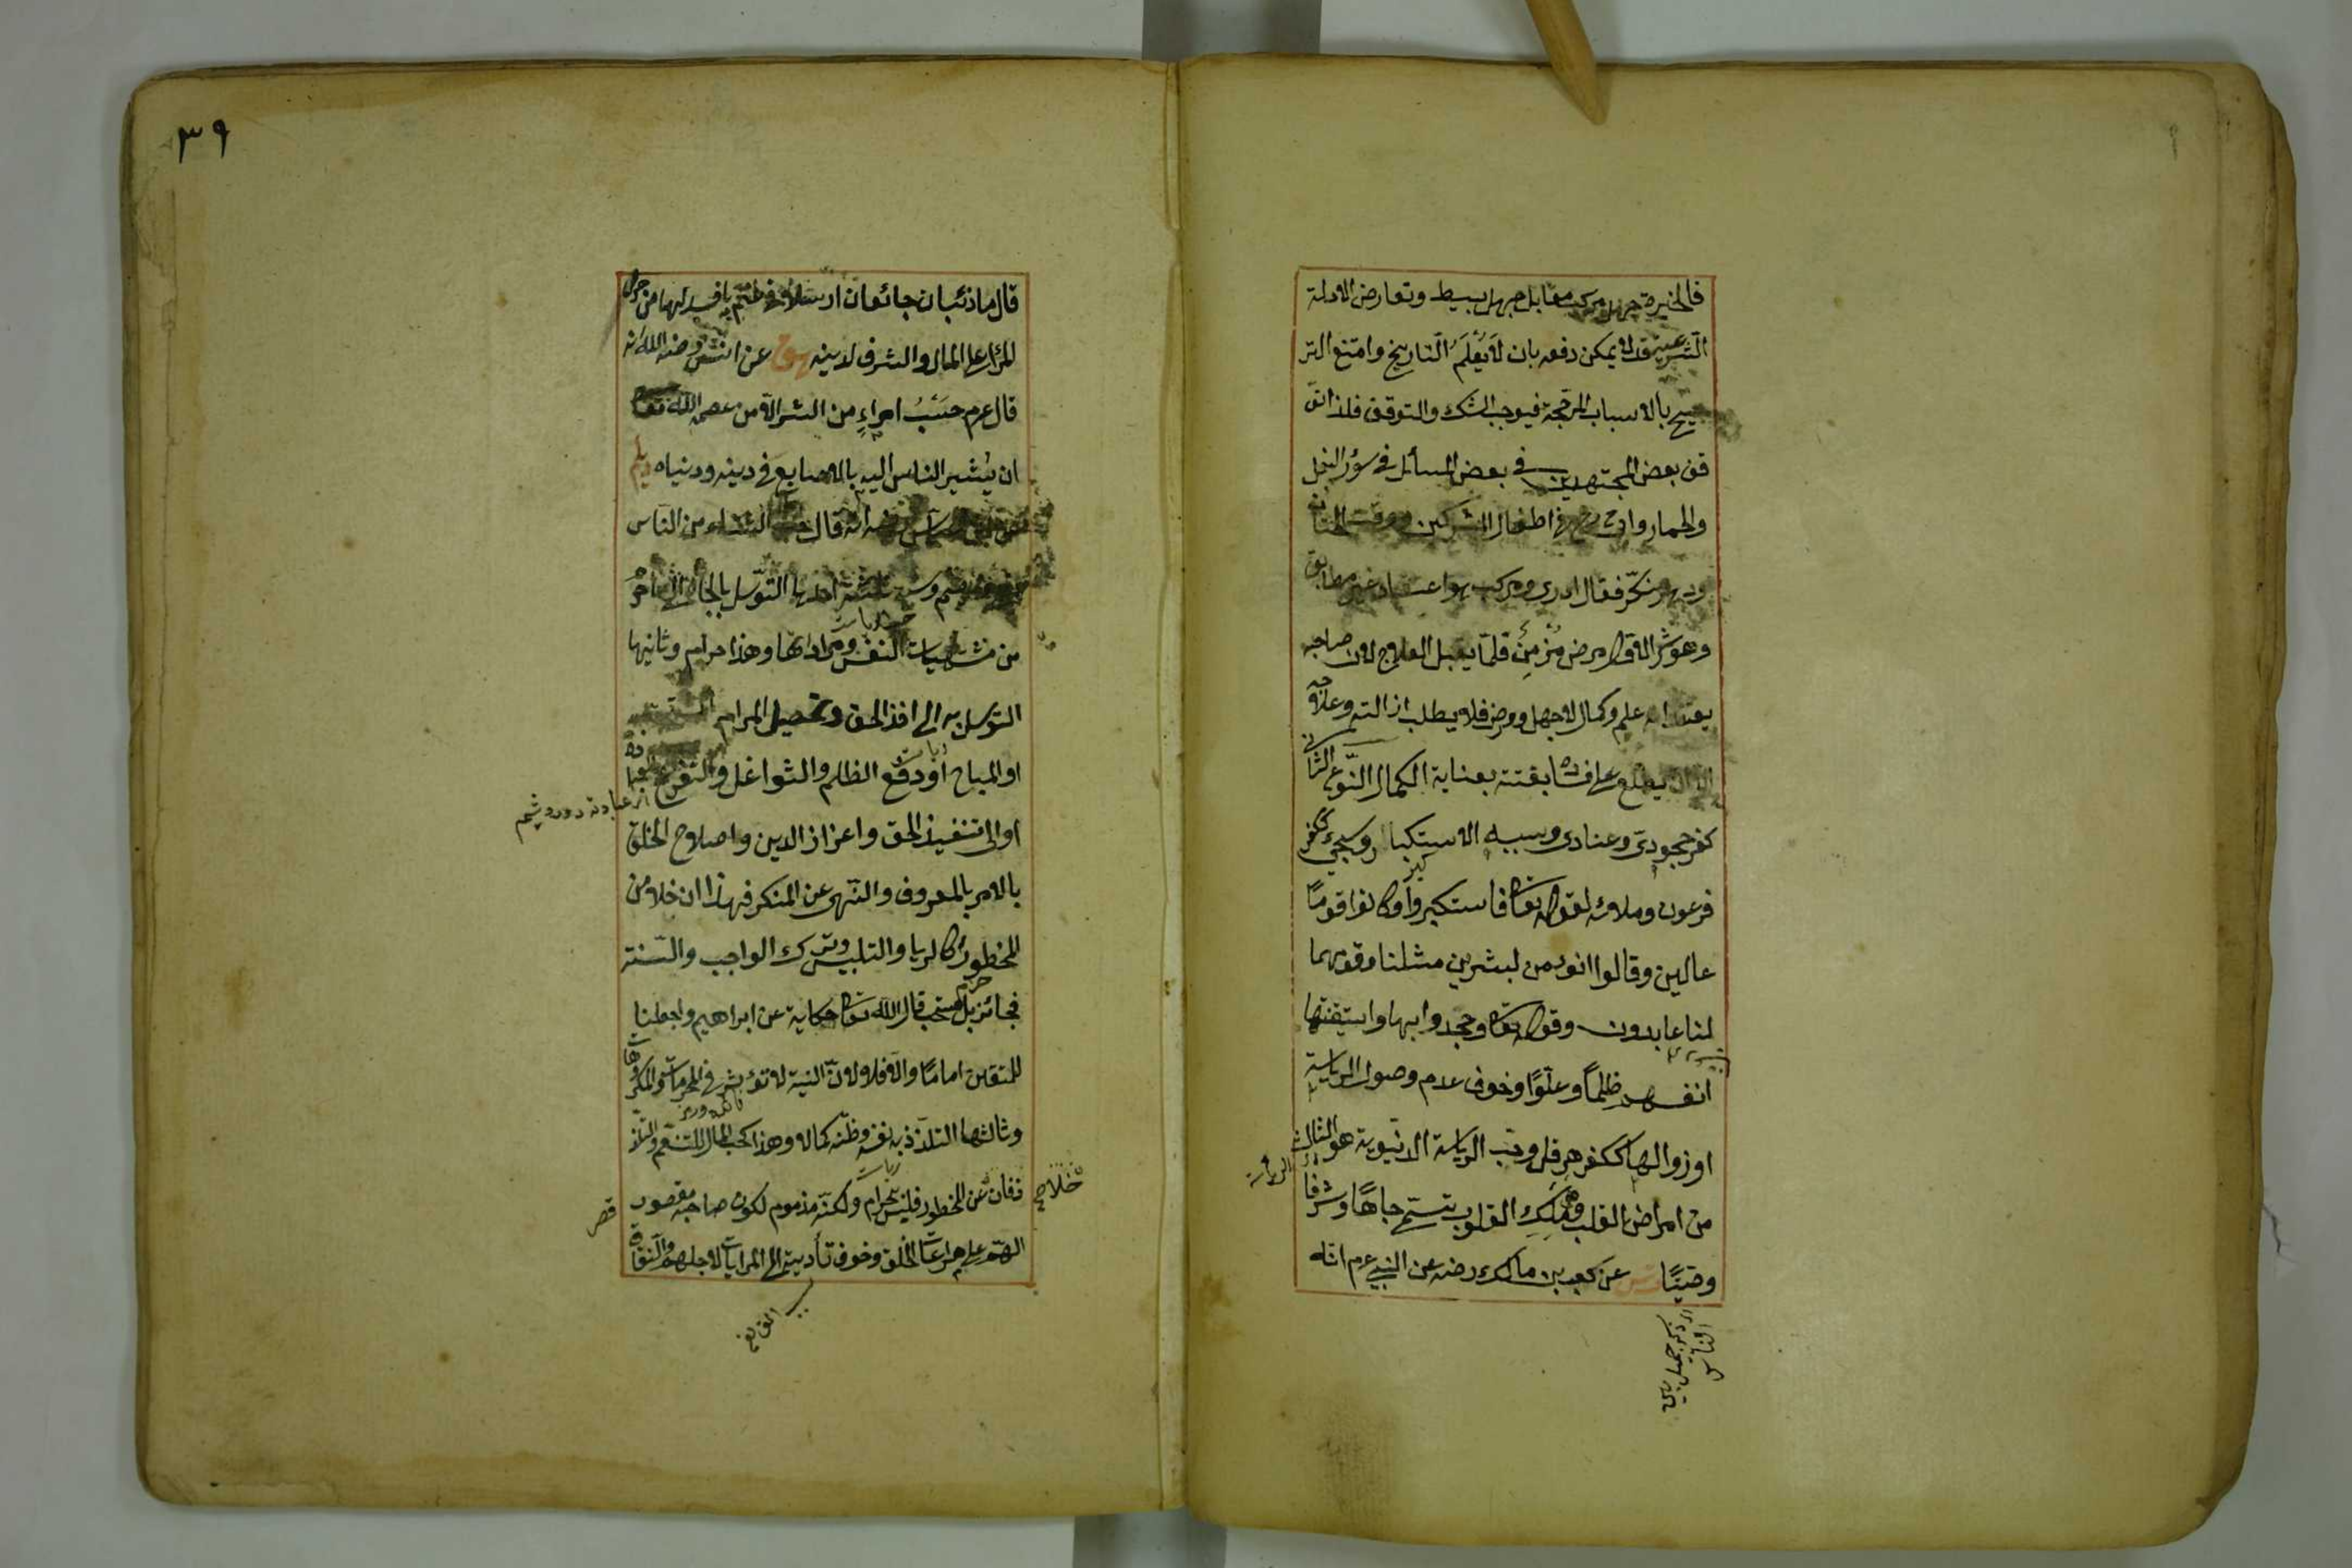 فالحيرة جهل مركب مقابل جهل بسيط وتعارض الادلة
الشرعية قد لا يمكن دفعه بان لا يُعْلَمَ التاريخ وامتنع التر
جيح بالاسباب المرجحة فيوجب الشك والتوقف فلذا تو
قف بعض المجتهدين في بعض المسائل في سؤر البغل
والحمار واب ح في اطفال المشركين ووقت الختان
ودهر منكّر فقال لا ادرى ومركب هو اعتقاد غير مطابق
وهو شر الاول مرض مُزْمِنٌ قلّما يقبل العلاج لان صاحبه
يعتقد انه علم وكمال لا جهل ومرض فلا يطلب ازالته وعلاجه
الا ان يطلع على فساده بغتة بعناية الكمال النّوع الثانى
كفر جحودى وعنادى وسببه الاستكبار وسيجئ ككفر
فرعون وملائه لقوله تعا فاستكبروا وكانوا قومًا
عالين وقالوا انؤمن لبشرين مثلنا وقومهما
لنا عابدون وقوله تعا وجحدوا بها واستيقنتها
انفسهم ظلمًا وعلوًا وخوف عدم وصول الرياسة
او زوالها ككفر هرقل وحب الرياسة الدنيوية هو الثالث
من امراض القلب وهى ملك القلوب يتسمى جاهًا وشرفًا
وصيتًا عن كعب بن مالك رضه عن النبى عم انّه
الرياسة
الناس
٣٩
قال ما ذئبان جائعان ارسلا فى غنم بافسد لها من حرص
المرء على المال والشرف لدينه هق عن انس رضه الله انه
قال عم حَسْبُ امرءٍ من الشر الا من عصمه الله تعا
ان يُشير الناس اليه بالاصابع فى دينه ودنياه ديلم
عن ابن عباس رضه انه قال حب الثناء من الناس
وسببه ثلثة احدها التوسل بالجاه الى ما حرم
من مشتهيات النفس ومراداتها وهذا حرام وثانيها
التوسل به الى اخذ الحق وتحصيل المرام المستحب
او المباح او دفع الظلم والشواغل والتفرغ للعبادة
او الى تنفيذ الحق واعزاز الدين واصلاح الخلق
بالامر بالمعروف والنّهى عن المنكر فهذا ان خلا من
المحظور كالريا والتلبيس وترك الواجب والسّنة
فجائز بل مستحب قال الله تعا حكاية عن ابراهيم واجعلنا
للمتقين امامًا والا فلا لانّ النية لا تؤثر فى المحرمات والمكروهات
وثالثها التلذذ به نفسه وظنه كماله وهذا كحب المال للتنعم والتلذذ
فان خلا عن المحظور فليس بحرام ولكنّه مذموم لكون صاحبه مقصور
الهمّ على مراعات الخلق وخوف تأديته الى المرايات لاجلهم والنّفاق
خلا صح
قصر